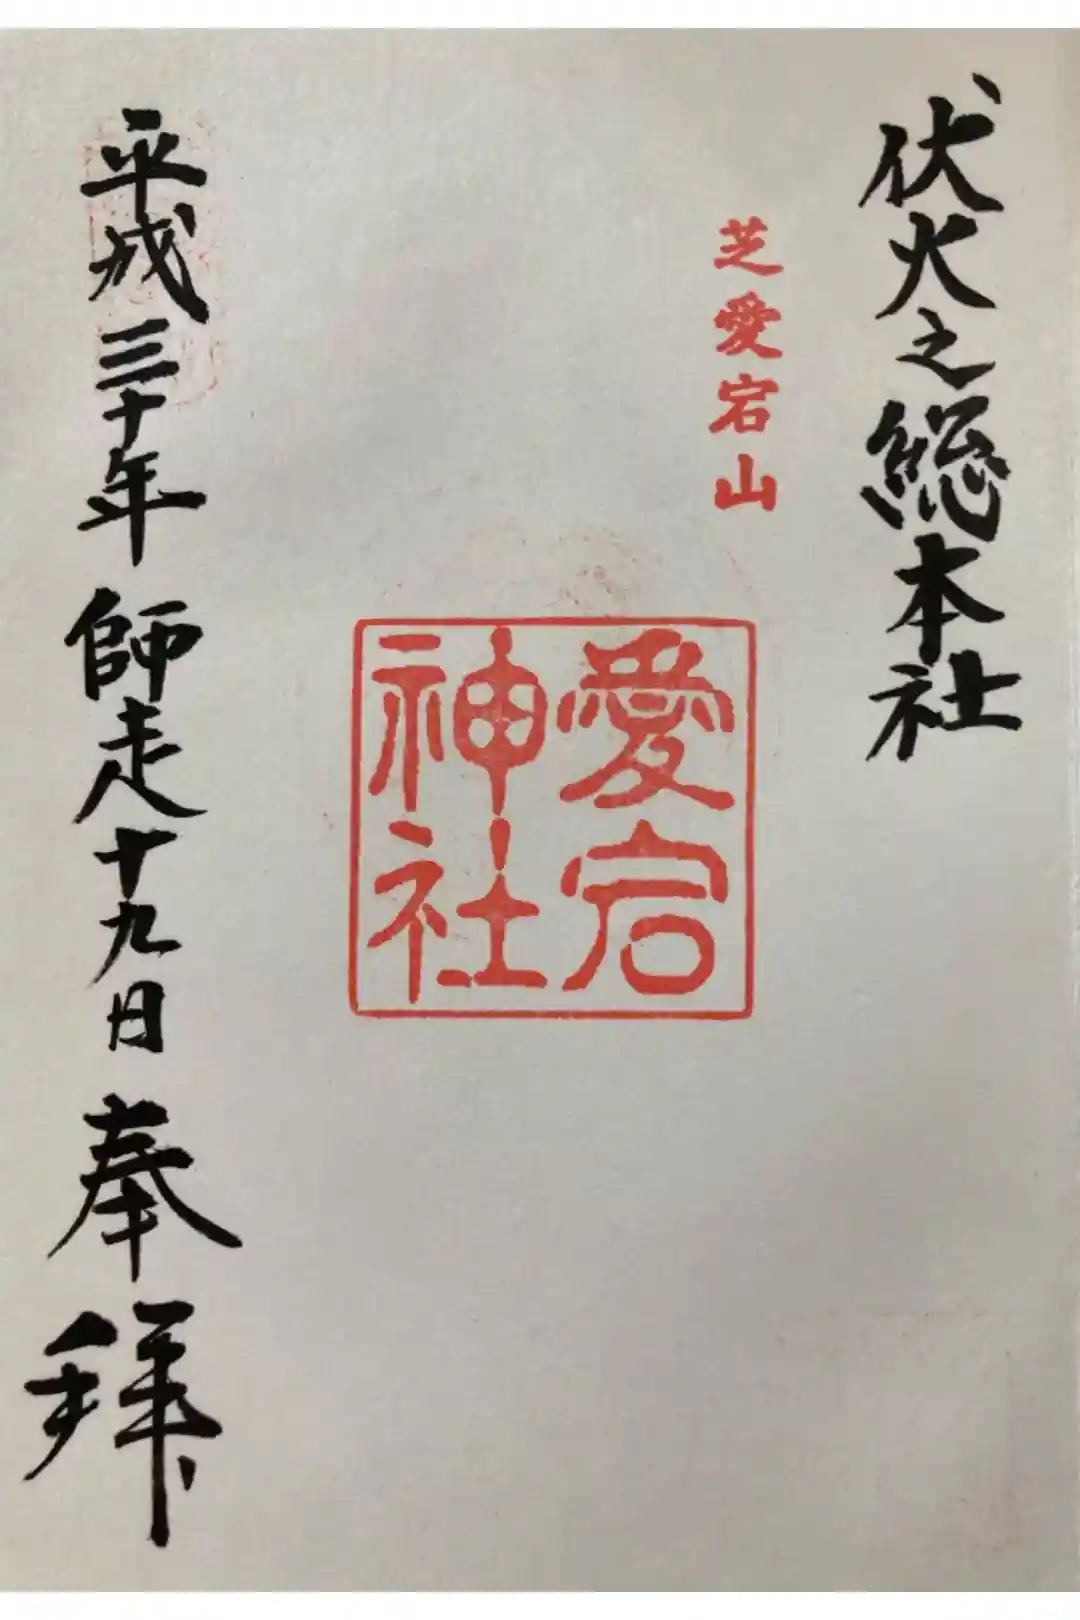 伏火之総本社
芝愛宕山
愛宕
神社
平成三十年師走十九日奉拜